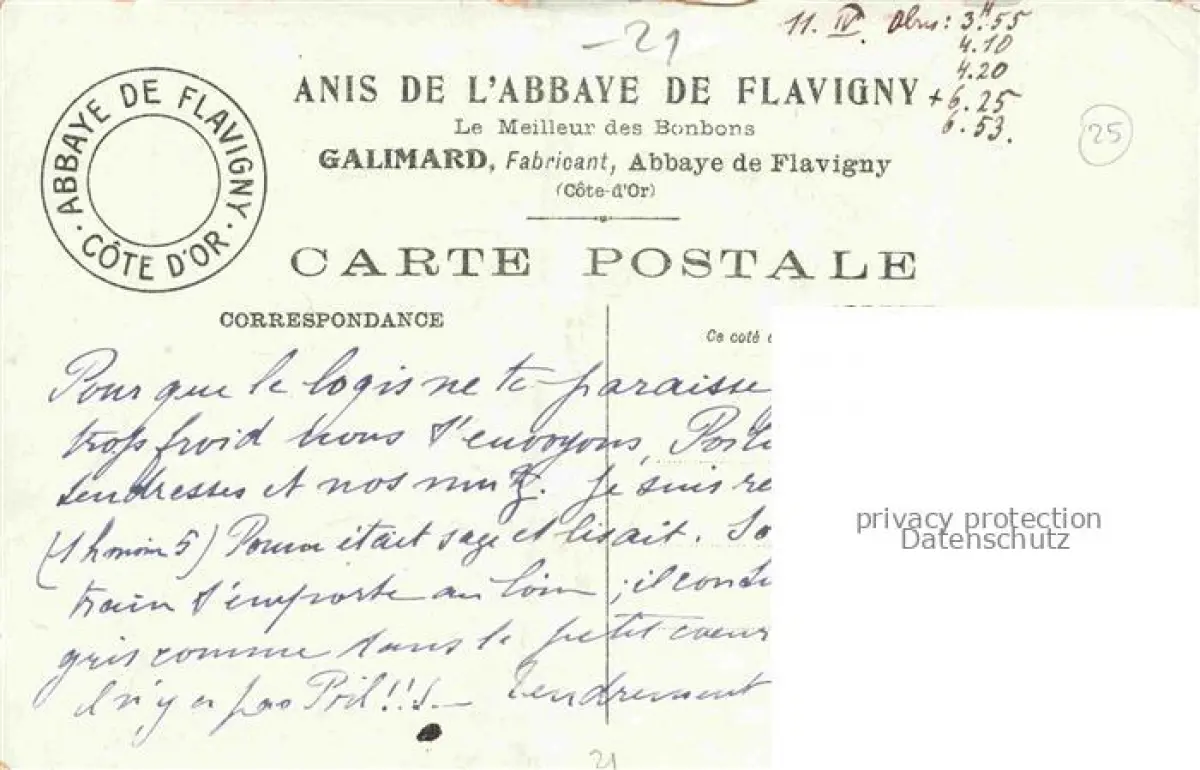 -21
11. IV. 3H55
4.10
4.20
+ 6.25
6.53.
25
ABBAYE DE FLAVIGNY
· CÔTE D'OR ·
ANIS DE L'ABBAYE DE FLAVIGNY
Le Meilleur des Bonbons
GALIMARD, Fabricant, Abbaye de Flavigny
(Côte-d'Or)
CARTE POSTALE
CORRESPONDANCE
Ce coté
Pour que le logis ne te paraisse
trop froid nous t'envoyons,
tendresses et nos Je suis re
(1 h moins 5) était sage et lisait. To
train t'emporte au loin ; il
gris comme dans le petit coeur
Il n'y a pas Poil!! Tendrement
21
privacy protection
Datenschutz